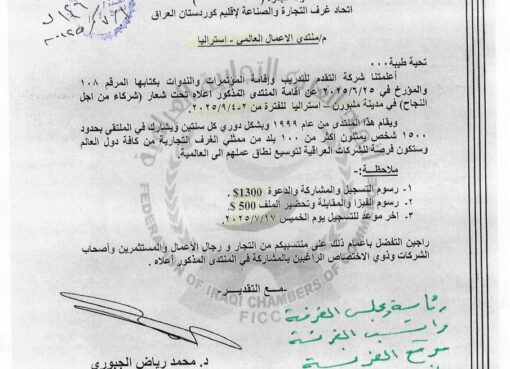 اتحاد غرف التجارة والصناعة لإقليم كوردستان العراق
م/منتدى الاعمال العالمي - استراليا
تحية طيبة ...
أعلمتنا شركة التقدم للتدريب وإقامة المؤتمرات والندوات بكتابها المرقم ١٠٨
والمؤرخ في ٢٠٢٥/٦/٢٥ عن اقامة المنتدى المذكور اعلاه تحت شعار (شركاء من اجل
النجاح) في مدينة ملبورن - استراليا للفترة من ٢-٢٠٢٥/٩/٤.
ويقام هذا المنتدى من عام ١٩٩٩ وبشكل دوري كل سنتين ويشارك في الملتقى بحدود
١٥٠٠ شخص يمثلون اكثر من ١٠٠ بلد من ممثلي الغرف التجارية من كافة دول العالم
وستكون فرصة للشركات العراقية لتوسيع نطاق عملهم الى العالمية.
ملاحظة:-
١. رسوم التسجيل والمشاركة والدعوة 1300$
٢. رسوم الفيزا والمقابلة وتحضير الملف 500 $.
٣. اخر موعد للتسجيل يوم الخميس ٢٠٢٥/٧/١٧.
راجين التفضل باعمام ذلك على منتسبيكم من التجار و رجال الأعمال والمستثمرين وأصحاب
الشركات وذوي الاختصاص الراغبين بالمشاركة في المنتدى المذكور أعلاه.
...مع التقدير...
FEDERATION OF IRAQI CHAMBERS OF COMMERCE
FICC
د. محمد رياض الجبوري